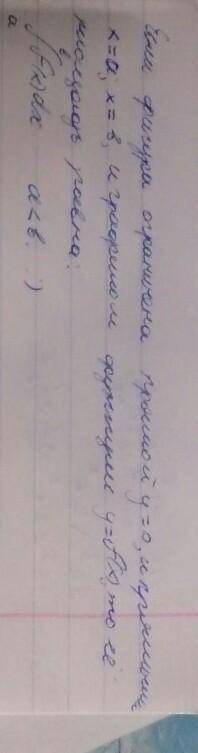 Если фигура ограничена прямой y=0, и прямыми
x=a, x=b, и графиком функции y=f(x), то её
площадь равна:
b
∫f(x)dx a<b. :)
a